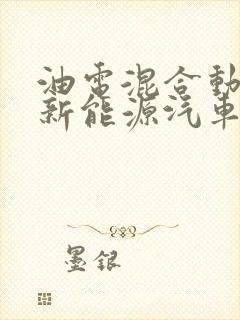 油電混合動
新能源汽車
墨銀